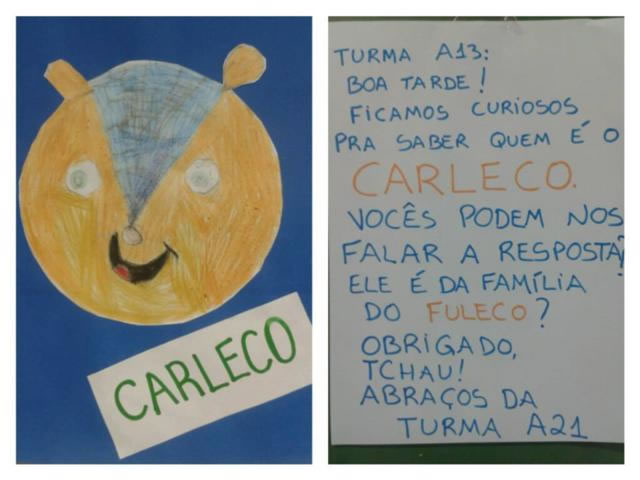 CARLECO
TURMA A13:
BOA TARDE!
FICAMOS CURIOSOS
PRA SABER QUEM É O
CARLECO.
VOCÊS PODEM NOS
FALAR A RESPOSTA?
ELE É DA FAMÍLIA
DO FULECO?
OBRIGADO,
TCHAU!
ABRAÇOS DA
TURMA A21